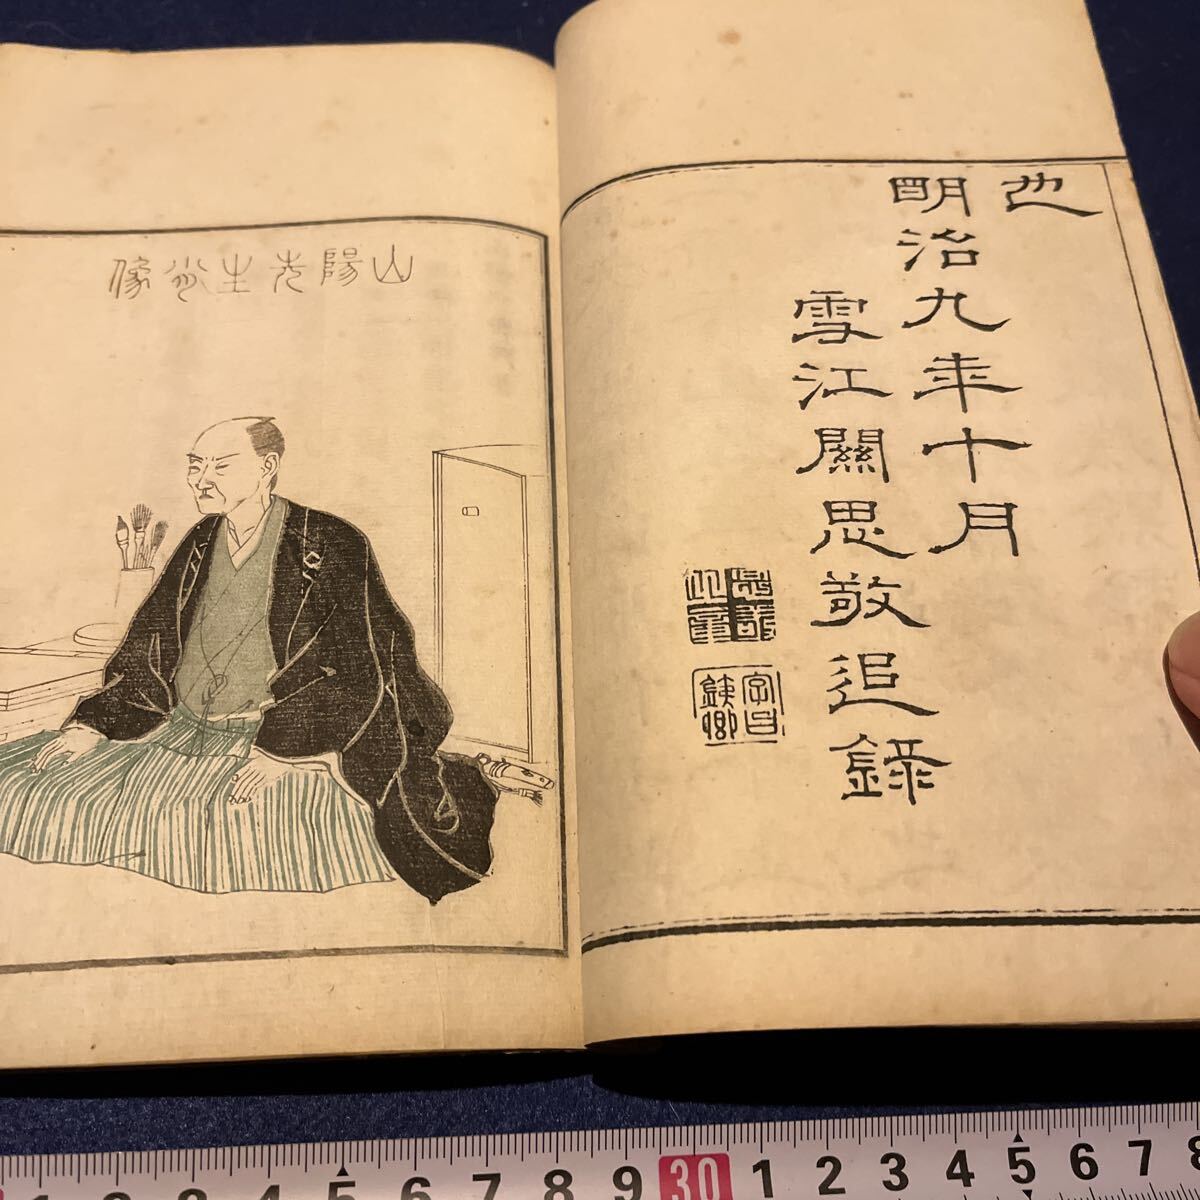 也
明治九年十月
雪江關思敬追錄
字曰銕卿
山陽先生肖像
1 2 3 4 5 6 7 8 9 30 1 2 3 4 5 6 7 8